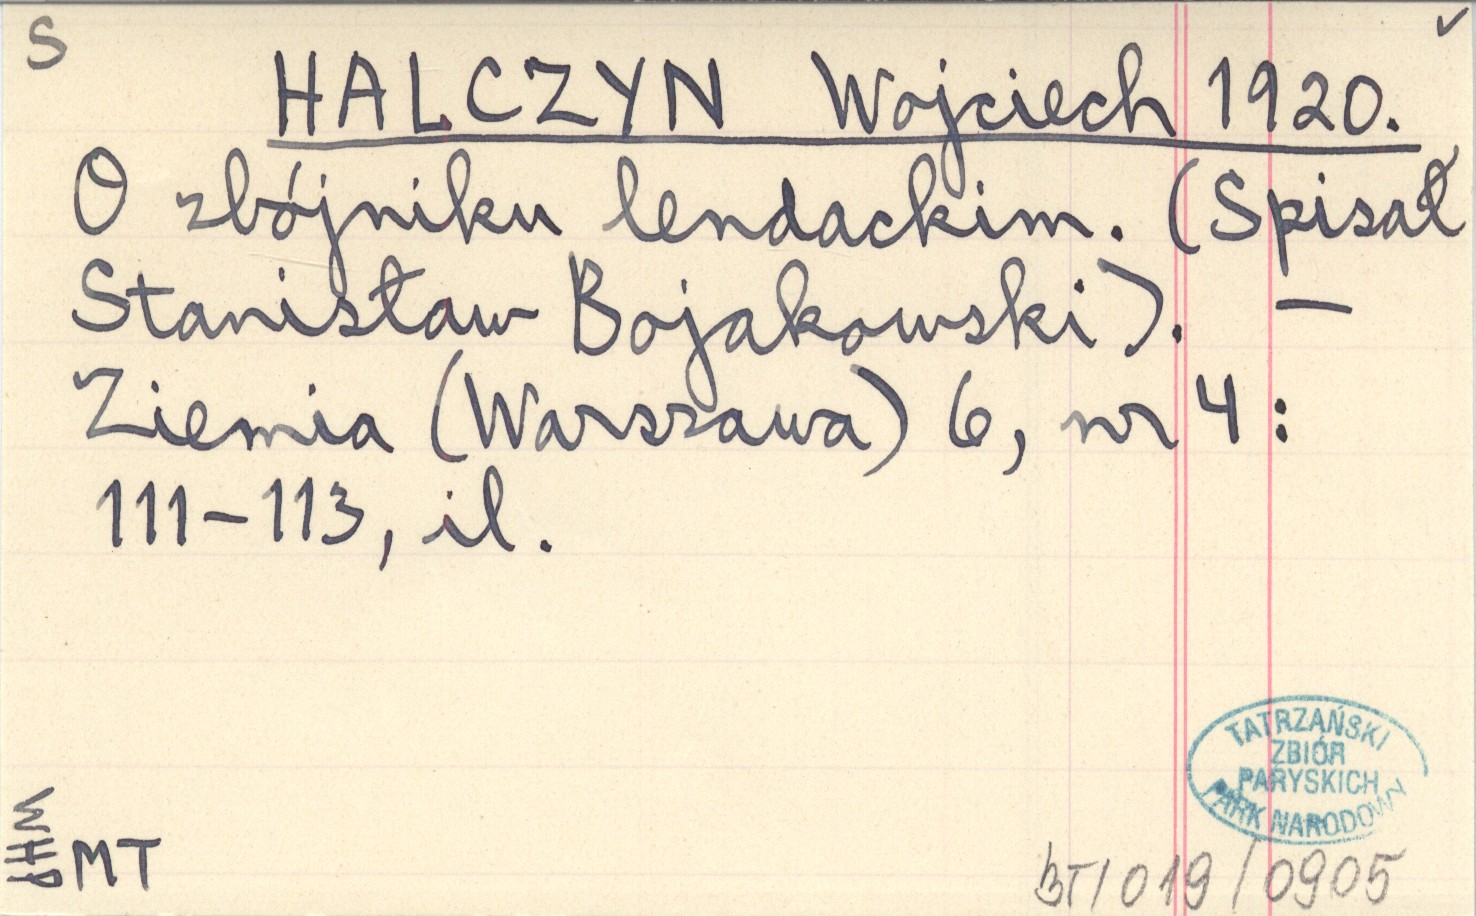 S
HALCZYN Wojciech 1920.
O zbójniku lendackim. (Spisał
Stanisław Bojakowski). —
Ziemia (Warszawa) 6, nr 4:
111-113, il.
TATRZAŃSKI
ZBIÓR
PARYSKICH
PARK NARODOWY
WHP
MT
BT/019/0905